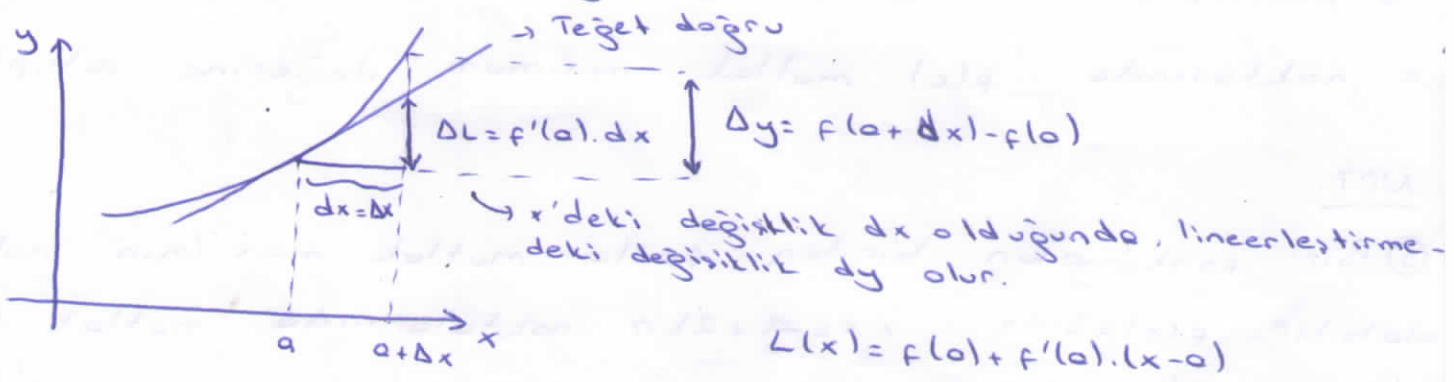 y
→ Teğet doğru
ΔL = f'(a).dx
Δy = f(a+dx)-f(a)
dx=Δx
→ x'deki değişklik dx olduğunda, lineerleştirme-
deki değişiklik dy olur.
a
a+Δx
x
L(x) = f(a) + f'(a).(x-a)